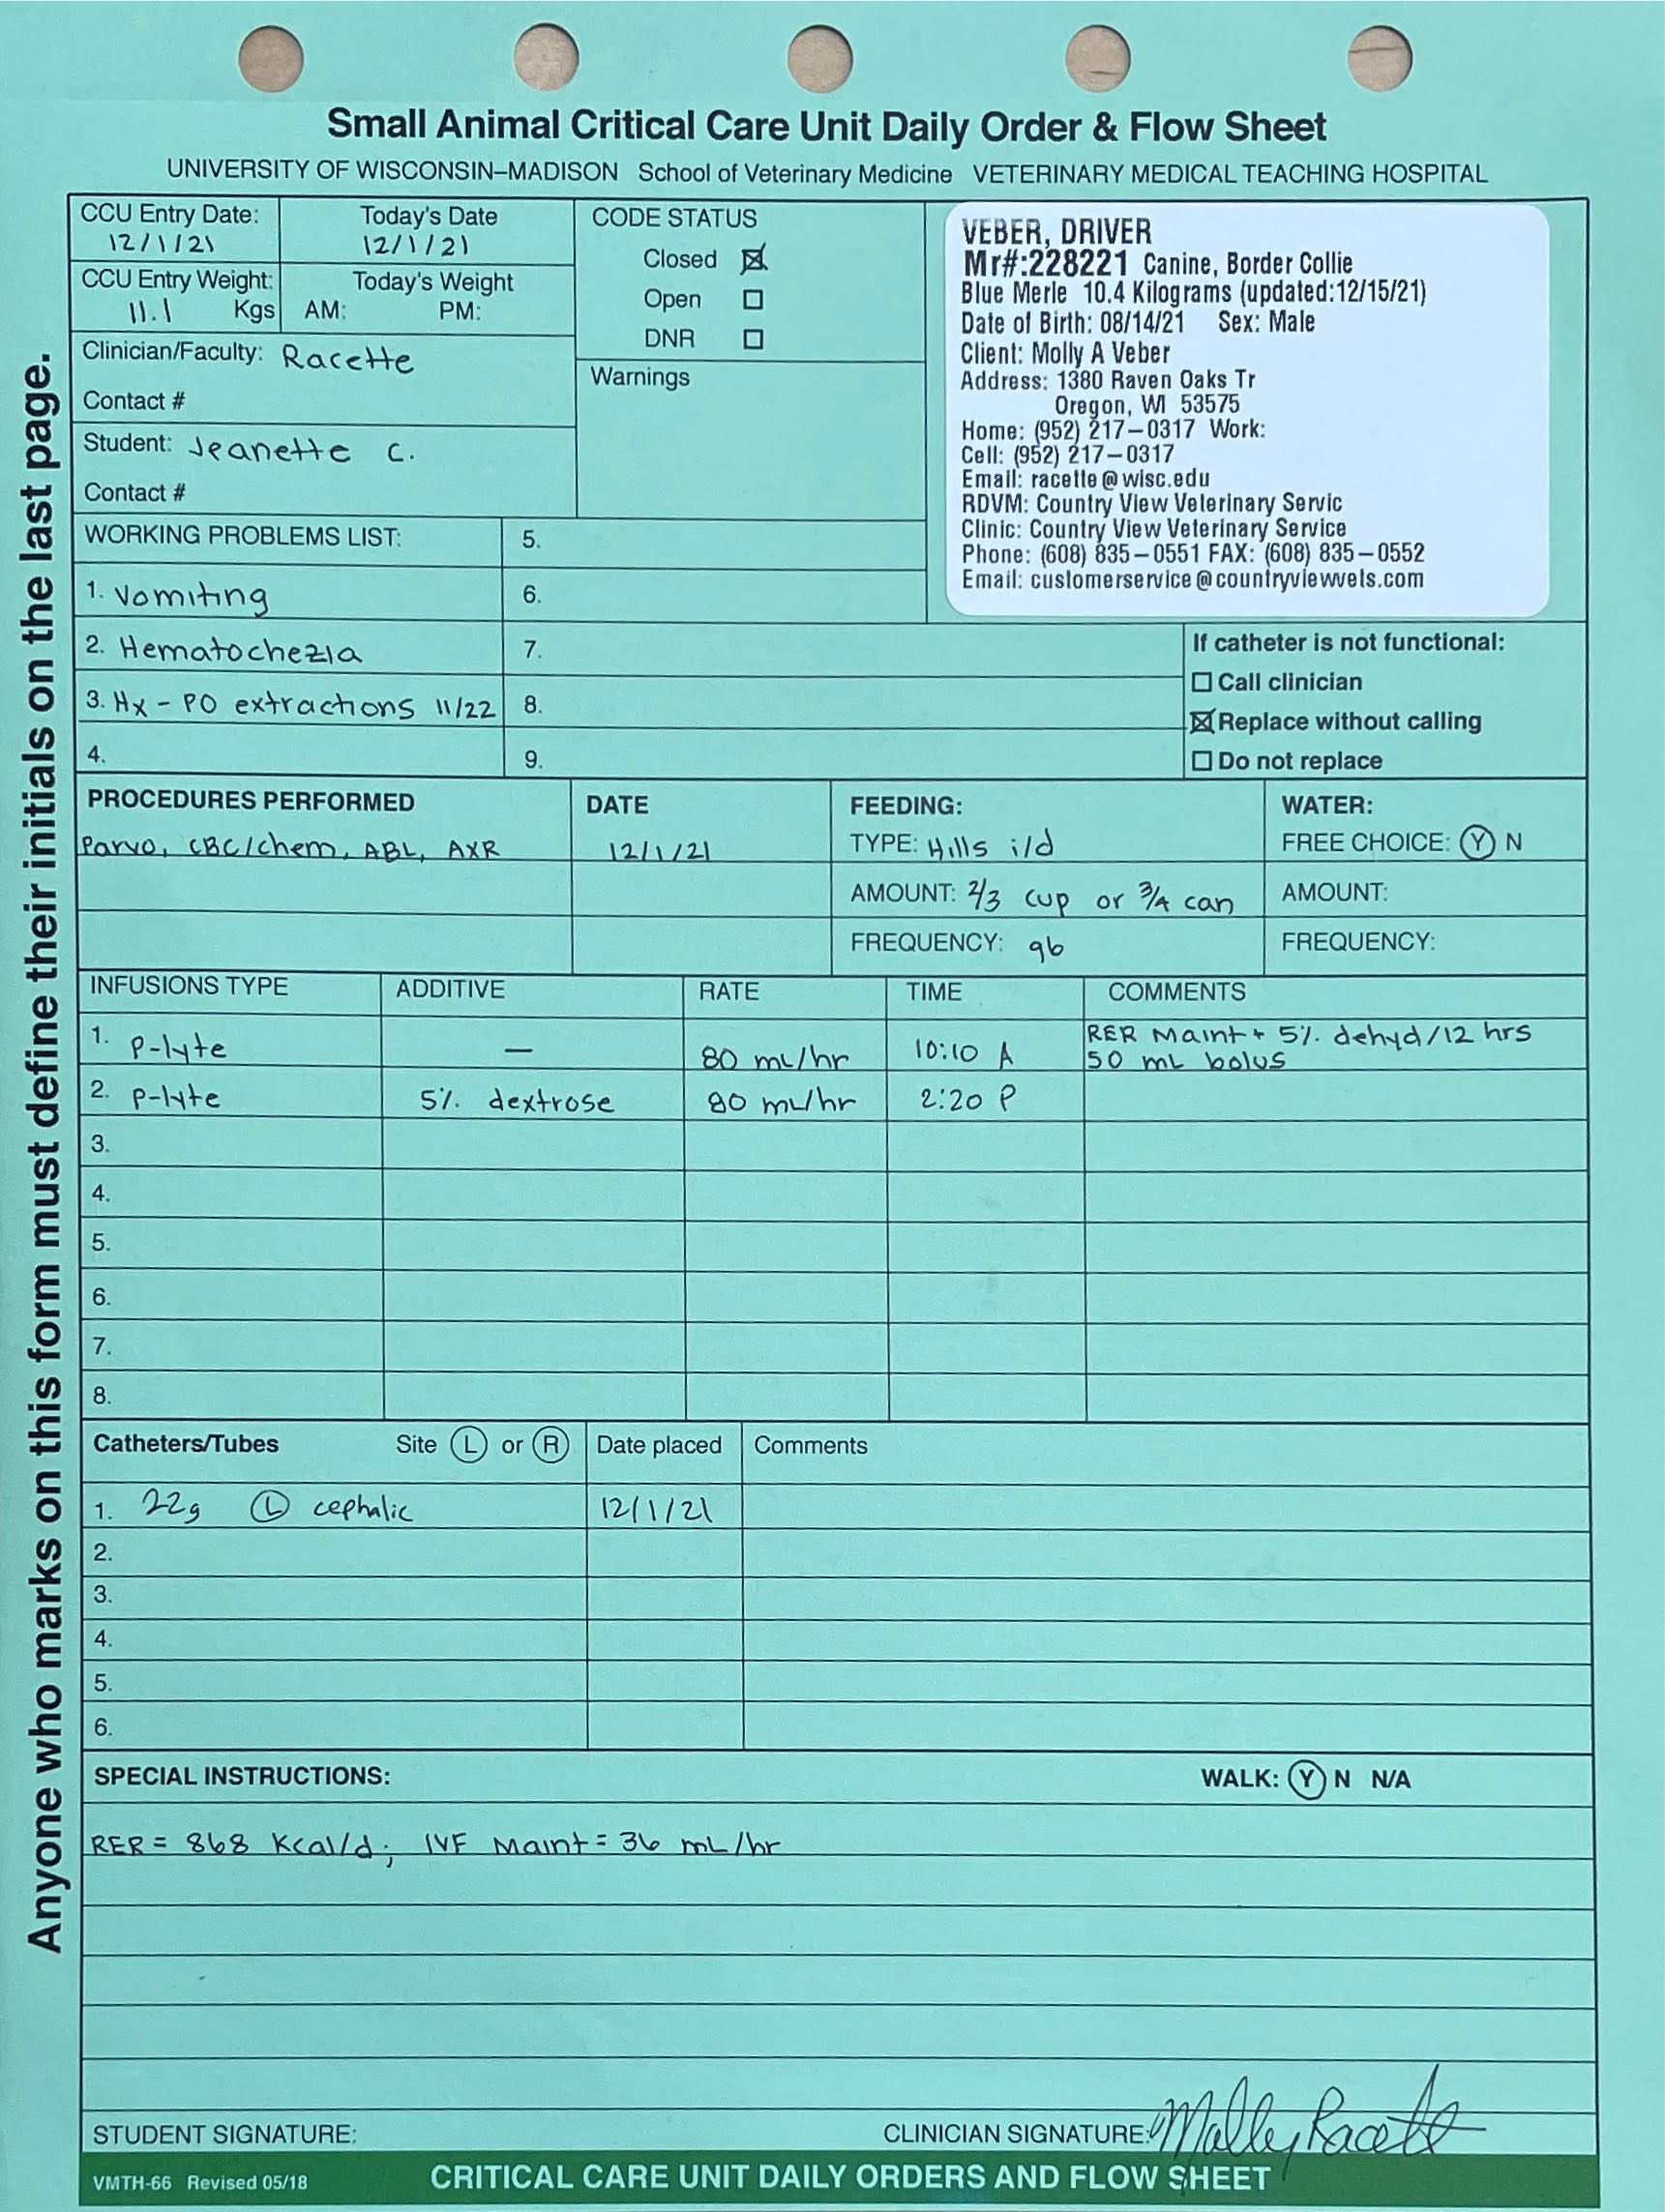 Small Animal Critical Care Unit Daily Order & Flow Sheet
UNIVERSITY OF WISCONSIN–MADISON School of Veterinary Medicine VETERINARY MEDICAL TEACHING HOSPITAL
Anyone who marks on this form must define their initials on the last page.
CCU Entry Date:
12/1/21
Today's Date
12/1/21
CCU Entry Weight:
11.1 Kgs
Today's Weight
AM: PM:
Clinician/Faculty: Racette
Contact #
Student: Jeanette C.
Contact #
CODE STATUS
Closed ☒
Open ☐
DNR ☐
Warnings
VEBER, DRIVER
Mr#:228221 Canine, Border Collie
Blue Merle 10.4 Kilograms (updated:12/15/21)
Date of Birth: 08/14/21 Sex: Male
Client: Molly A Veber
Address: 1380 Raven Oaks Tr
Oregon, WI 53575
Home: (952) 217-0317 Work:
Cell: (952) 217-0317
Email: racette@wisc.edu
RDVM: Country View Veterinary Servic
Clinic: Country View Veterinary Service
Phone: (608) 835-0551 FAX: (608) 835-0552
Email: customerservice@countryviewvets.com
WORKING PROBLEMS LIST:
1. Vomiting
2. Hematochezia
3. Hx - PO extractions 11/22
4.
5.
6.
7.
8.
9.
If catheter is not functional:
☐ Call clinician
☒ Replace without calling
☐ Do not replace
PROCEDURES PERFORMED DATE
Parvo, CBC/chem, ABL, AXR 12/1/21
FEEDING:
TYPE: Hills i/d
AMOUNT: 2/3 cup or 3/4 can
FREQUENCY: q6
WATER:
FREE CHOICE: Y N
AMOUNT:
FREQUENCY:
INFUSIONS TYPE ADDITIVE RATE TIME COMMENTS
1. P-lyte — 80 mL/hr 10:10 A RER Maint + 5% dehyd/12 hrs
50 mL bolus
2. P-lyte 5% dextrose 80 mL/hr 2:20 P
3.
4.
5.
6.
7.
8.
Catheters/Tubes Site L or R Date placed Comments
1. 22g L cephalic 12/1/21
2.
3.
4.
5.
6.
SPECIAL INSTRUCTIONS: WALK: Y N N/A
RER = 868 Kcal/d; IVF Maint = 36 mL/hr
STUDENT SIGNATURE: CLINICIAN SIGNATURE: Molly Racette
VMTH-66 Revised 05/18 CRITICAL CARE UNIT DAILY ORDERS AND FLOW SHEET